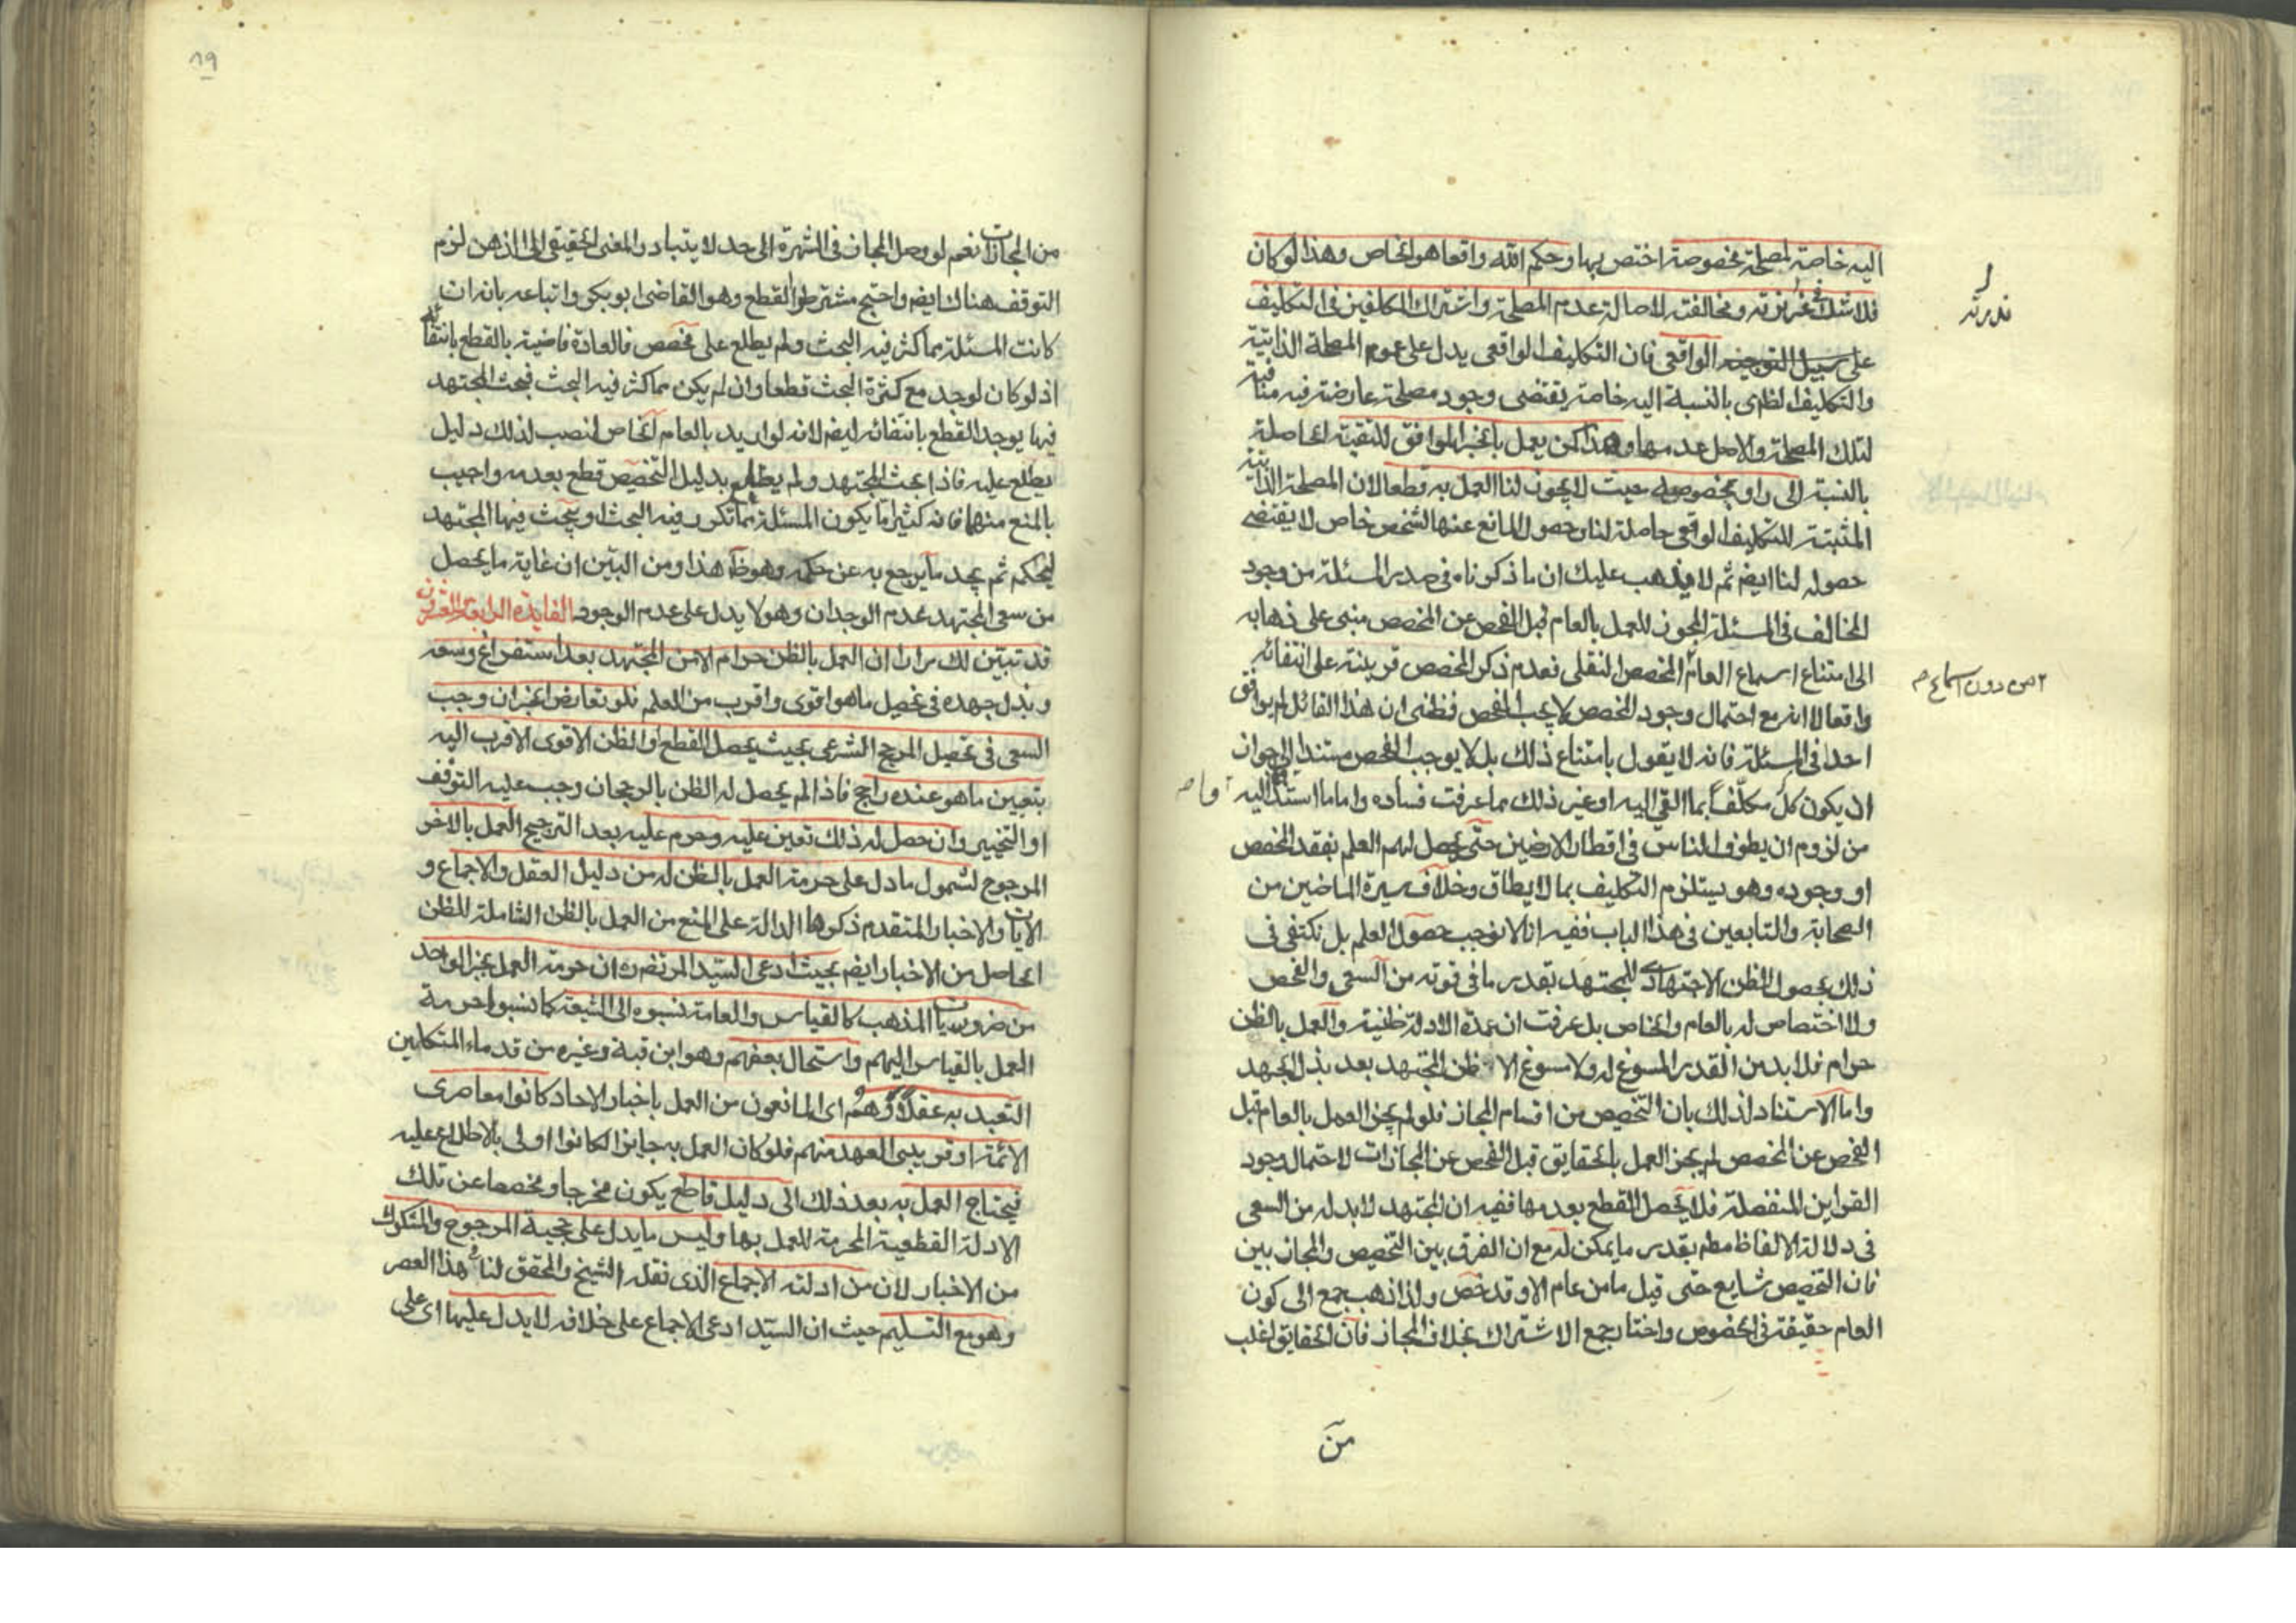 اليه خاصة لمصلحة مخصوصة اختص بها وحكم الله واقعا هو الخاص وهذا لو كان
فلا شك في ندرته ومخالفته لاصالة عدم المصلحة واشتراك المكلفين في التكليف
على سبيل الواقعى فان التكليف الواقعى يدل على عموم المصلحة الذاتية
والتكليف الظهرى بالنسبة اليه خاصة يقتضى وجود مصلحة عارضة فيه منافية
لتلك المصلحة والاصل عدمها وهذا كمن يعمل بالخبر الموافق للتقية الحاصلة
بالنسبة الى راو بخصوصه حيث لا يجوز لنا العمل به قطعا لان المصلحة الذاتية
المثبتة للتكليف الواقعى حاصلة لنا وحصول المانع عنها لشخص خاص لا يقتضى
حصوله لنا ايضم ثم لا يذهب عليك ان ما ذكرناه فى صدر المسئلة من وجود
المخالف فى المسئلة المجوز للعمل بالعام قبل الفحص عن المخصص مبنى على ذهابه
الى امتناع اسماع العام المخصص النقلى فعدم ذكر المخصص قرينة على انتفائه
واقعا لا انه مع احتمال وجود المخصص لا يجب الفحص فظنى ان هذا القائل لم يوافق
احدا فى المسئلة فانه لا يقول بامتناع ذلك بل لا يوجب الفحص مستندا الى جواز
ان يكون كل مكلّفاً بما القى اليه او غير ذلك مما عرفت فساده واما ما استند اليه
من لزوم ان يطوفوا الناس فى اقطار الارضين حتى يحصل لهم العلم بفقد المخصص
او وجوده وهو يستلزم التكليف بما لا يطاق وخلاف سيرة الماضين من
الصحابة والتابعين فى هذا الباب ففيه انا لا نوجب حصول العلم بل نكتفى فى
ذلك بحصول الظن الاجتهادى للمجتهد بقدر ما فى قوته من السعى والفحص
ولا اختصاص له بالعام والخاص بل عرفت ان عمدة الادلة ظنية والعمل بالظن
حرام فلا بد من القدر المسوغ له ولا مسوغ الا ظن المجتهد بعد بذل الجهد
واما الاستناد لذلك بان التخصيص من اقسام المجاز فلو لم يجز العمل بالعام قبل
الفحص عن المخصص لم يجز العمل بالحقايق قبل الفحص عن المجازات لاحتمال وجود
القراين المنفصلة فلا يحصل القطع بعدمها ففيه ان المجتهد لا بد له من السعى
فى دلالة الالفاظ مطم بقدر ما يمكن له مع ان الفرق بين التخصيص والمجاز بين
فان التخصيص شايع حتى قيل ما من عام الا وقد خص ولذا ذهب جمع الى كون
العام حقيقة فى الخصوص واختار جمع الاشتراك بخلاف المجاز فان الحقايق اغلب
ندرته
من دون اسماع م
من
١٩
من المجازات نعم لو وصل المجاز فى الشهرة الى حد لا يتبادر المعنى الحقيقى الى الذهن لزم
التوقف هناك ايضم واحتج مشترطوا القطع وهو القاضى ابو بكر واتباعه بانه ان
كانت المسئلة مما كثر فيه البحث ولم يطلع على مخصص فالعادة قاضية بالقطع بانتفائه
اذ لو كان لوجد مع كثرة البحث قطعا وان لم يكن مما كثر فيه البحث فبحث المجتهد
فيها يوجد القطع بانتفائه ايضم لانه لو اريد بالعام الخاص لنصب لذلك دليل
يطلع عليه فاذا بحث المجتهد ولم يطلع بدليل التخصيص قطع بعدمه واجيب
بالمنع منهما فانه كثيرا ما يكون المسئلة مما تكرر فيه البحث او يبحث فيها المجتهد
ليحكم ثم يجد ما يرجع به عن حكمه وهو ظآ هذا ومن البيّن ان غاية ما يحصل
من سعى المجتهد عدم الوجدان وهو لا يدل على عدم الوجود الفايدة الرابعة والعشرون
قد تبيّن لك مرارا ان العمل بالظن حرام الا من المجتهد بعد استفراغ وسعه
وبذل جهده فى تحصيل ما هو اقوى واقرب من العلم فلو تعارض الخبران وجب
السعى فى تحصيل المرجح الشرعى بحيث يحصل القطع او الظن الاقوى الاقرب اليه
بتعيين ما هو عنده راجح فاذا لم يحصل له الظن بالرجحان وجب عليه التوقف
او التخيير وان حصل له ذلك تعين عليه وحرم عليه بعد الترجيح العمل بالاخر
المرجوح لشمول ما دل على حرمة العمل بالظن له من دليل العقل والاجماع و
الايات والاخبار المتقدم ذكرها الدالة على المنع من العمل بالظن الشاملة للظن
الحاصل من الاخبار ايضم بحيث ادعى السيّد المرتضى ره ان حرمة العمل بخبر الواحد
من ضروريات المذهب كالقياس والعامة نسبوه الى الشيعة كما نسبوا حرمة
العمل بالقياس اليهم واستحال بعضهم وهو ابن قبة وغيره من قدماء المتكلمين
التعبد به عقلاً وهم اى المانعون من العمل باخبار الاحاد كانوا معاصرى
الائمة او قريبى العهد منهم فلو كان العمل به جايزا لكانوا اولى بالاطلاع عليه
فيحتاج العمل به بعد ذلك الى دليل قاطع يكون مخرجا ومخصصا عن تلك
الادلة القطعية المحرمة للعمل بها وليس ما يدل على حجية المرجوح والمشكوك
من الاخبار لان من ادلته الاجماع الذى نقله الشيخ والمحقق لنا هذا العصر
وهو مع التسليم حيث ان السيّد ادعى الاجماع على خلافه لا يدل عليها اى على